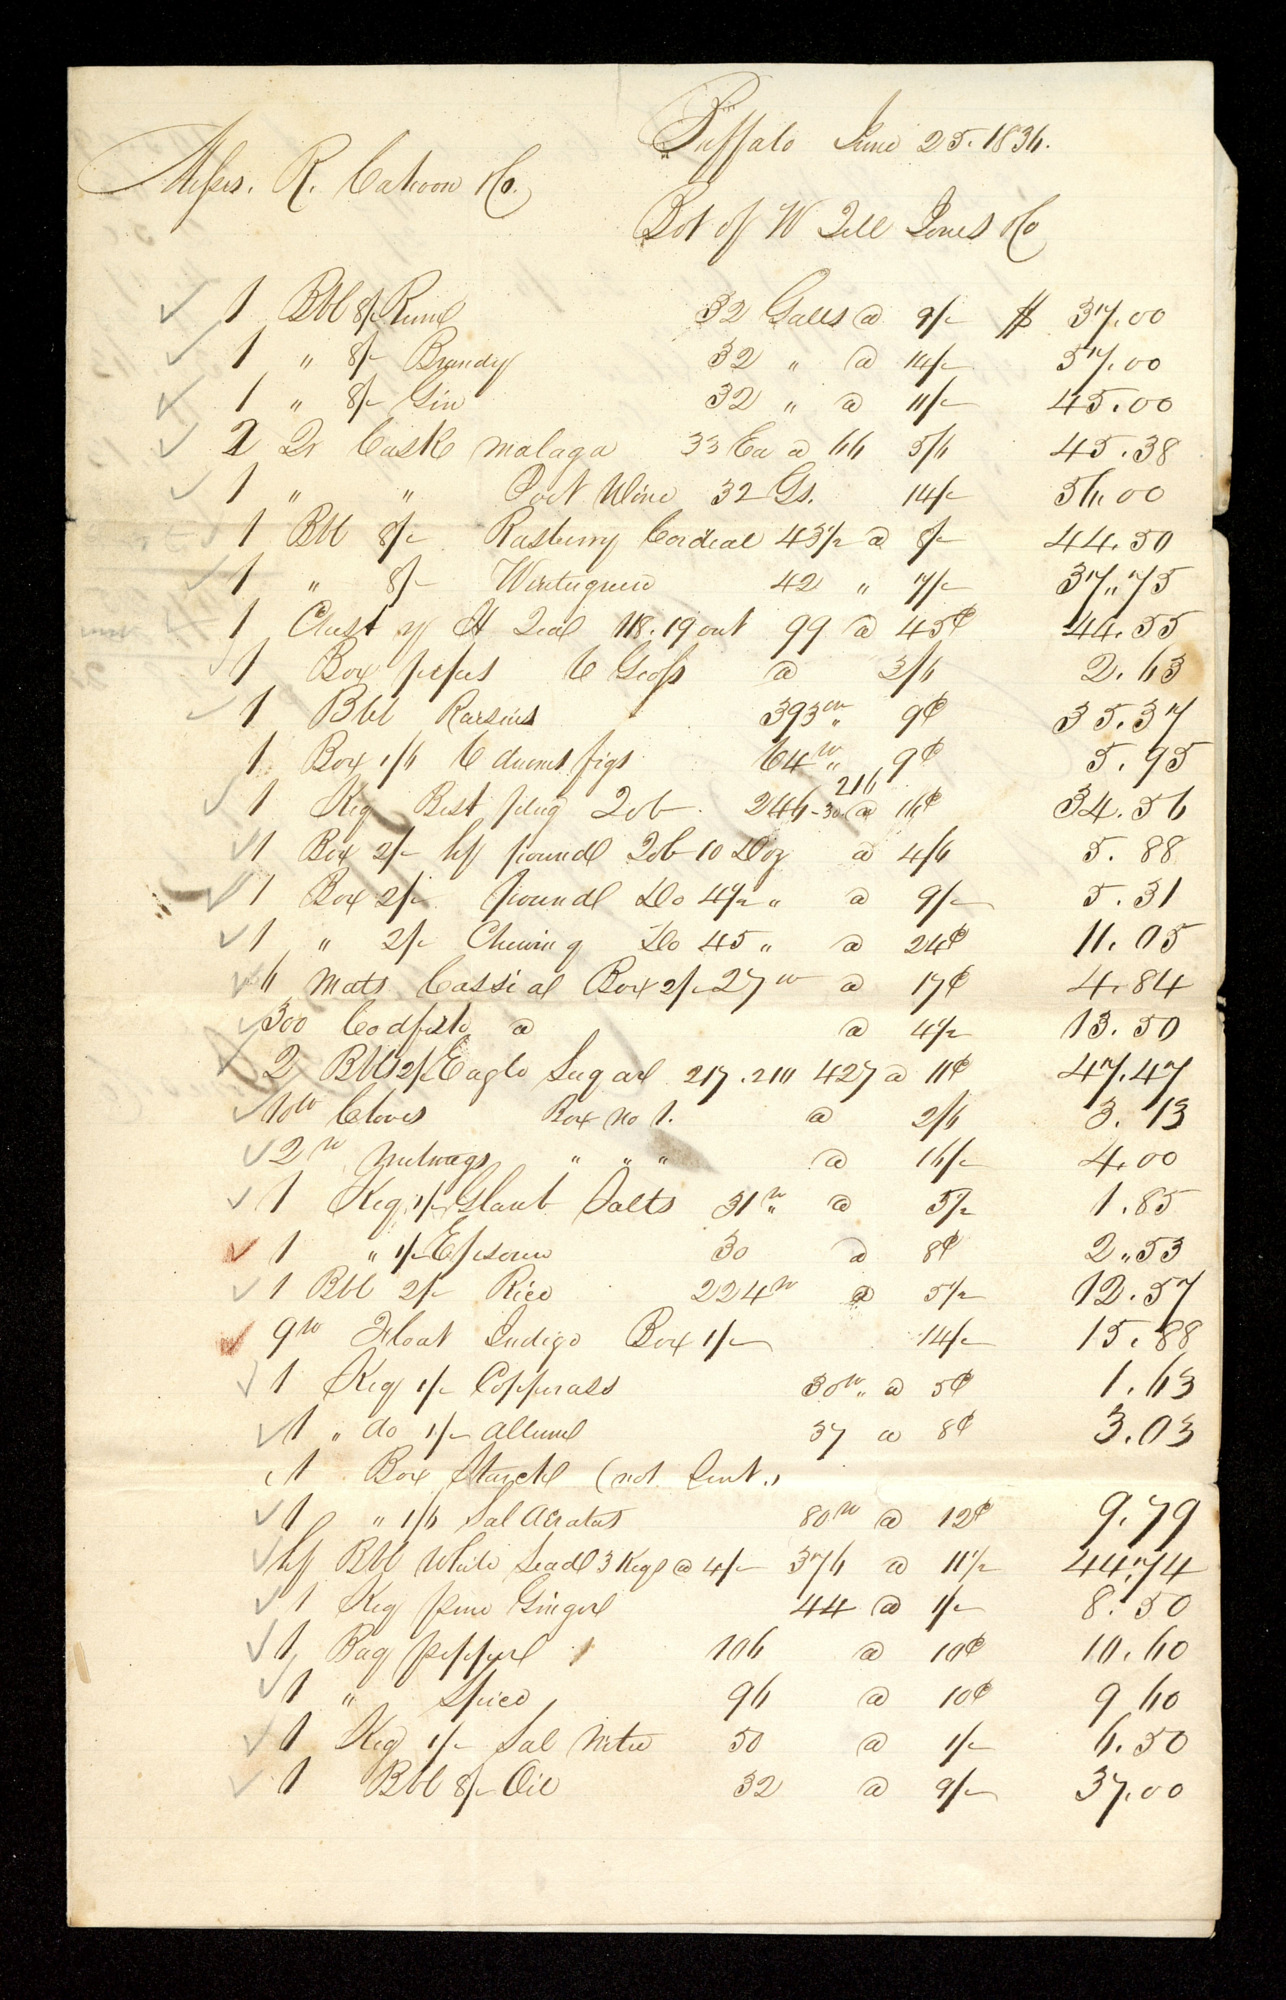 Buffalo June 25. 1836.
Messrs. R. Calhoon & Co.
Bot of W Tell Jones & Co
1 Bbl 8/- Rum 32 Galls @ 9/- $ 37.00
1 " 8/- Brandy 32 " @ 14/- 57.00
1 " 8/- Gin 32 " @ 11/- 45.00
2 Qr Cask malaga 33 Ea @ 66 5/6 45.38
1 " " Port Wine 32 Gs. 14/- 56.00
1 Bbl 8/- Rasberry Cordial 43½ @ 8/- 44.50
1 " 8/- Wintergreen 42 " 7/- 37.75
1 Chest y H Tea 118.19 out 99 @ 45¢ 44.55
1 Box pipes 6 Gross @ 3/6 2.63
1 Bbl Raisins 393 " 9¢ 35.37
1 Box 1/6 6 drums figs 64 " 9¢ 5.95
216
1 Keg Best plug Tob 246-30 @ 16¢ 34.56
1 Box 2/- hf pound Tob 10 Doz @ 4/6 5.88
1 Box 2/- pound Do 4½ " @ 9/- 5.31
1 " 2/- Chewing Do 45 " @ 24¢ 11.05
4 Mats Cassia Box 2/- 27 @ 17¢ 4.84
300 Codfish @ @ 4½ 13.50
2 Bbl 2/- Eagle Sugar 217.210 427 @ 11¢ 47.47
10 Cloves Box no 1. @ 2/6 3.13
2 Nutmegs " " " @ 16/- 4.00
1 Keg 1/- Glaub Salts 31 " @ 5½ 1.85
1 " 1/- Epsom 30 @ 8¢ 2.53
1 Bbl 2/- Rice 224 @ 5½ 12.57
9 Float Indigo Box 1/- 14/- 15.88
1 Keg 1/- Copperass 30 " @ 5¢ 1.63
1 " do 1/- Allum 37 @ 8¢ 3.03
1 Box Starch (not Sent.)
1 " 1/6 Sal Aeratus 80 @ 12¢ 9.79
hf Bbl White Lead 3 Kegs @ 4/- 376 @ 11½ 44.74
1 Keg pure Ginger 44 @ 1/- 8.50
1 Bag pepper 106 @ 10¢ 10.60
1 " Spice 96 @ 10¢ 9 60
1 Keg 1/- Sal Nitre 50 @ 1/- 6.50
1 Bbl 8/- Oil 32 @ 9/- 37.00